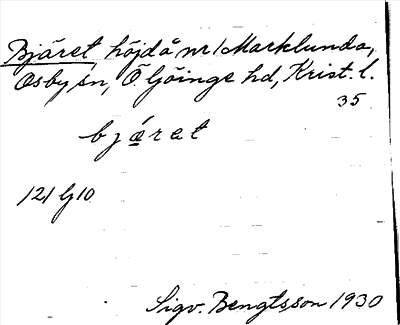 Bjäret höjd å nr 1 Marklunda,
Osby sn, Ö Göinge hd, Krist. l.
35
bjæret
121 G10
Sigv. Bengtsson 1930